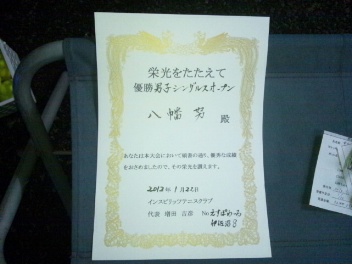 栄光をたたえて
優勝男子シングルスオープン
八幡 努 殿
あなたは本大会において頭書の通り、優秀な成績
をおさめましたので、その栄光を讃えます。
2012年1月22日
インスピリッツテニスクラブ
代表 増田 吉彦